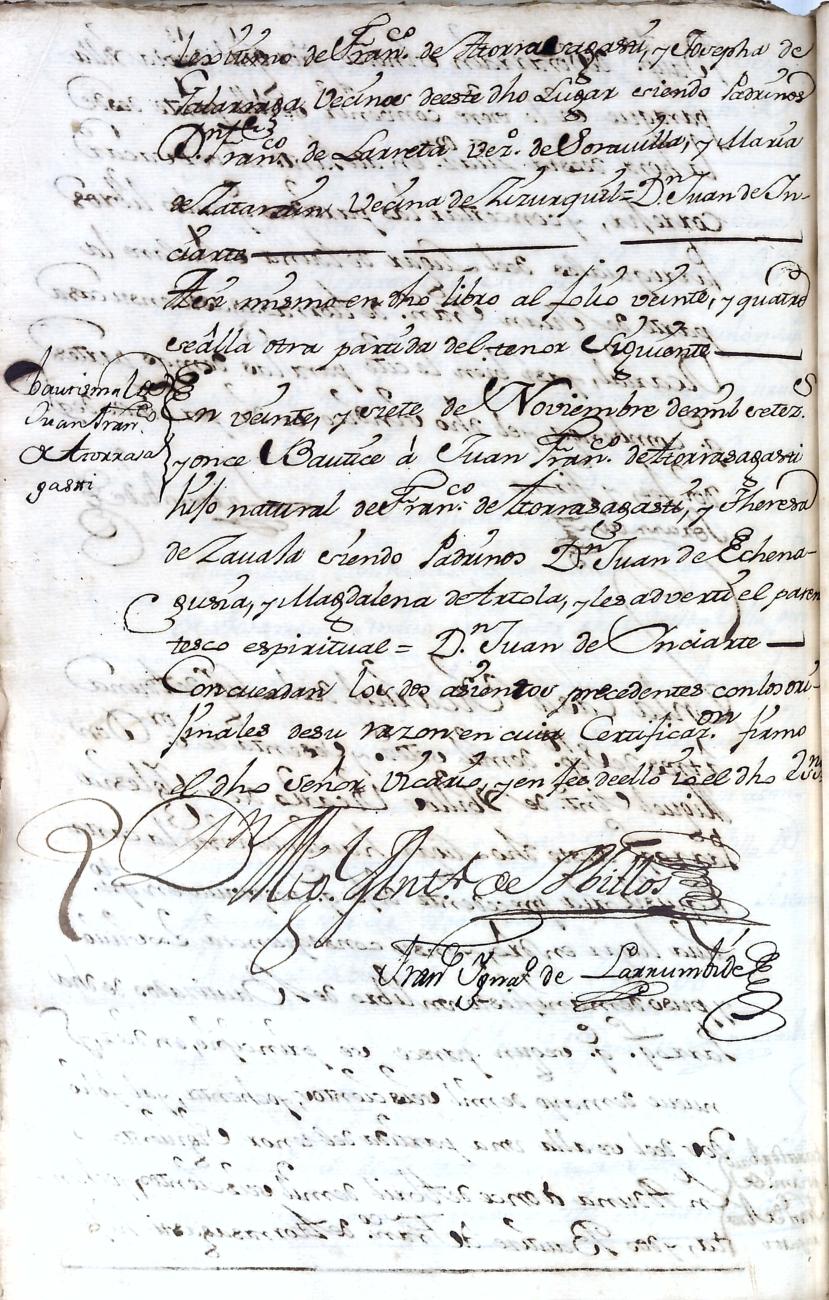 lexitimo de Franco. de Atorrasagasti, y Josepha de
Galarraga Vecinos de este dho Lugar siendo Padrinos
Dn. Franco. de Larreta vezo. de Soravilla, y Maria
de Zatarain Vecina de Zizurquil = Dn. Juan de In-
ciarte
Asi mismo en dho libro al folio veinte, y quatro
se alla otra partida del tenor siguiente
bautismal de
Juan Franco.
de Atorrasa
gasti
En veinte, y siete de Noviembre de mil setezs.
y once Bautice à Juan Franco. de Atorrasagasti
hijo natural de Franco. de Atorrasagasti, y Theresa
de Zavala siendo Padrinos Dn. Juan de Echena-
gusia, y Magdalena de Artola, y les adverti el paren
tesco espiritual = Dn. Juan de Inciarte
Concuerdan los dos asientos precedentes con los ori-
jinales de su razon, en cuia Certificazon. firmo
el dho Señor Vicario, y en fee de ello io el dho
Dn. Migl. Anto. de Abillos
Franco Ygnao. de Larrumbide